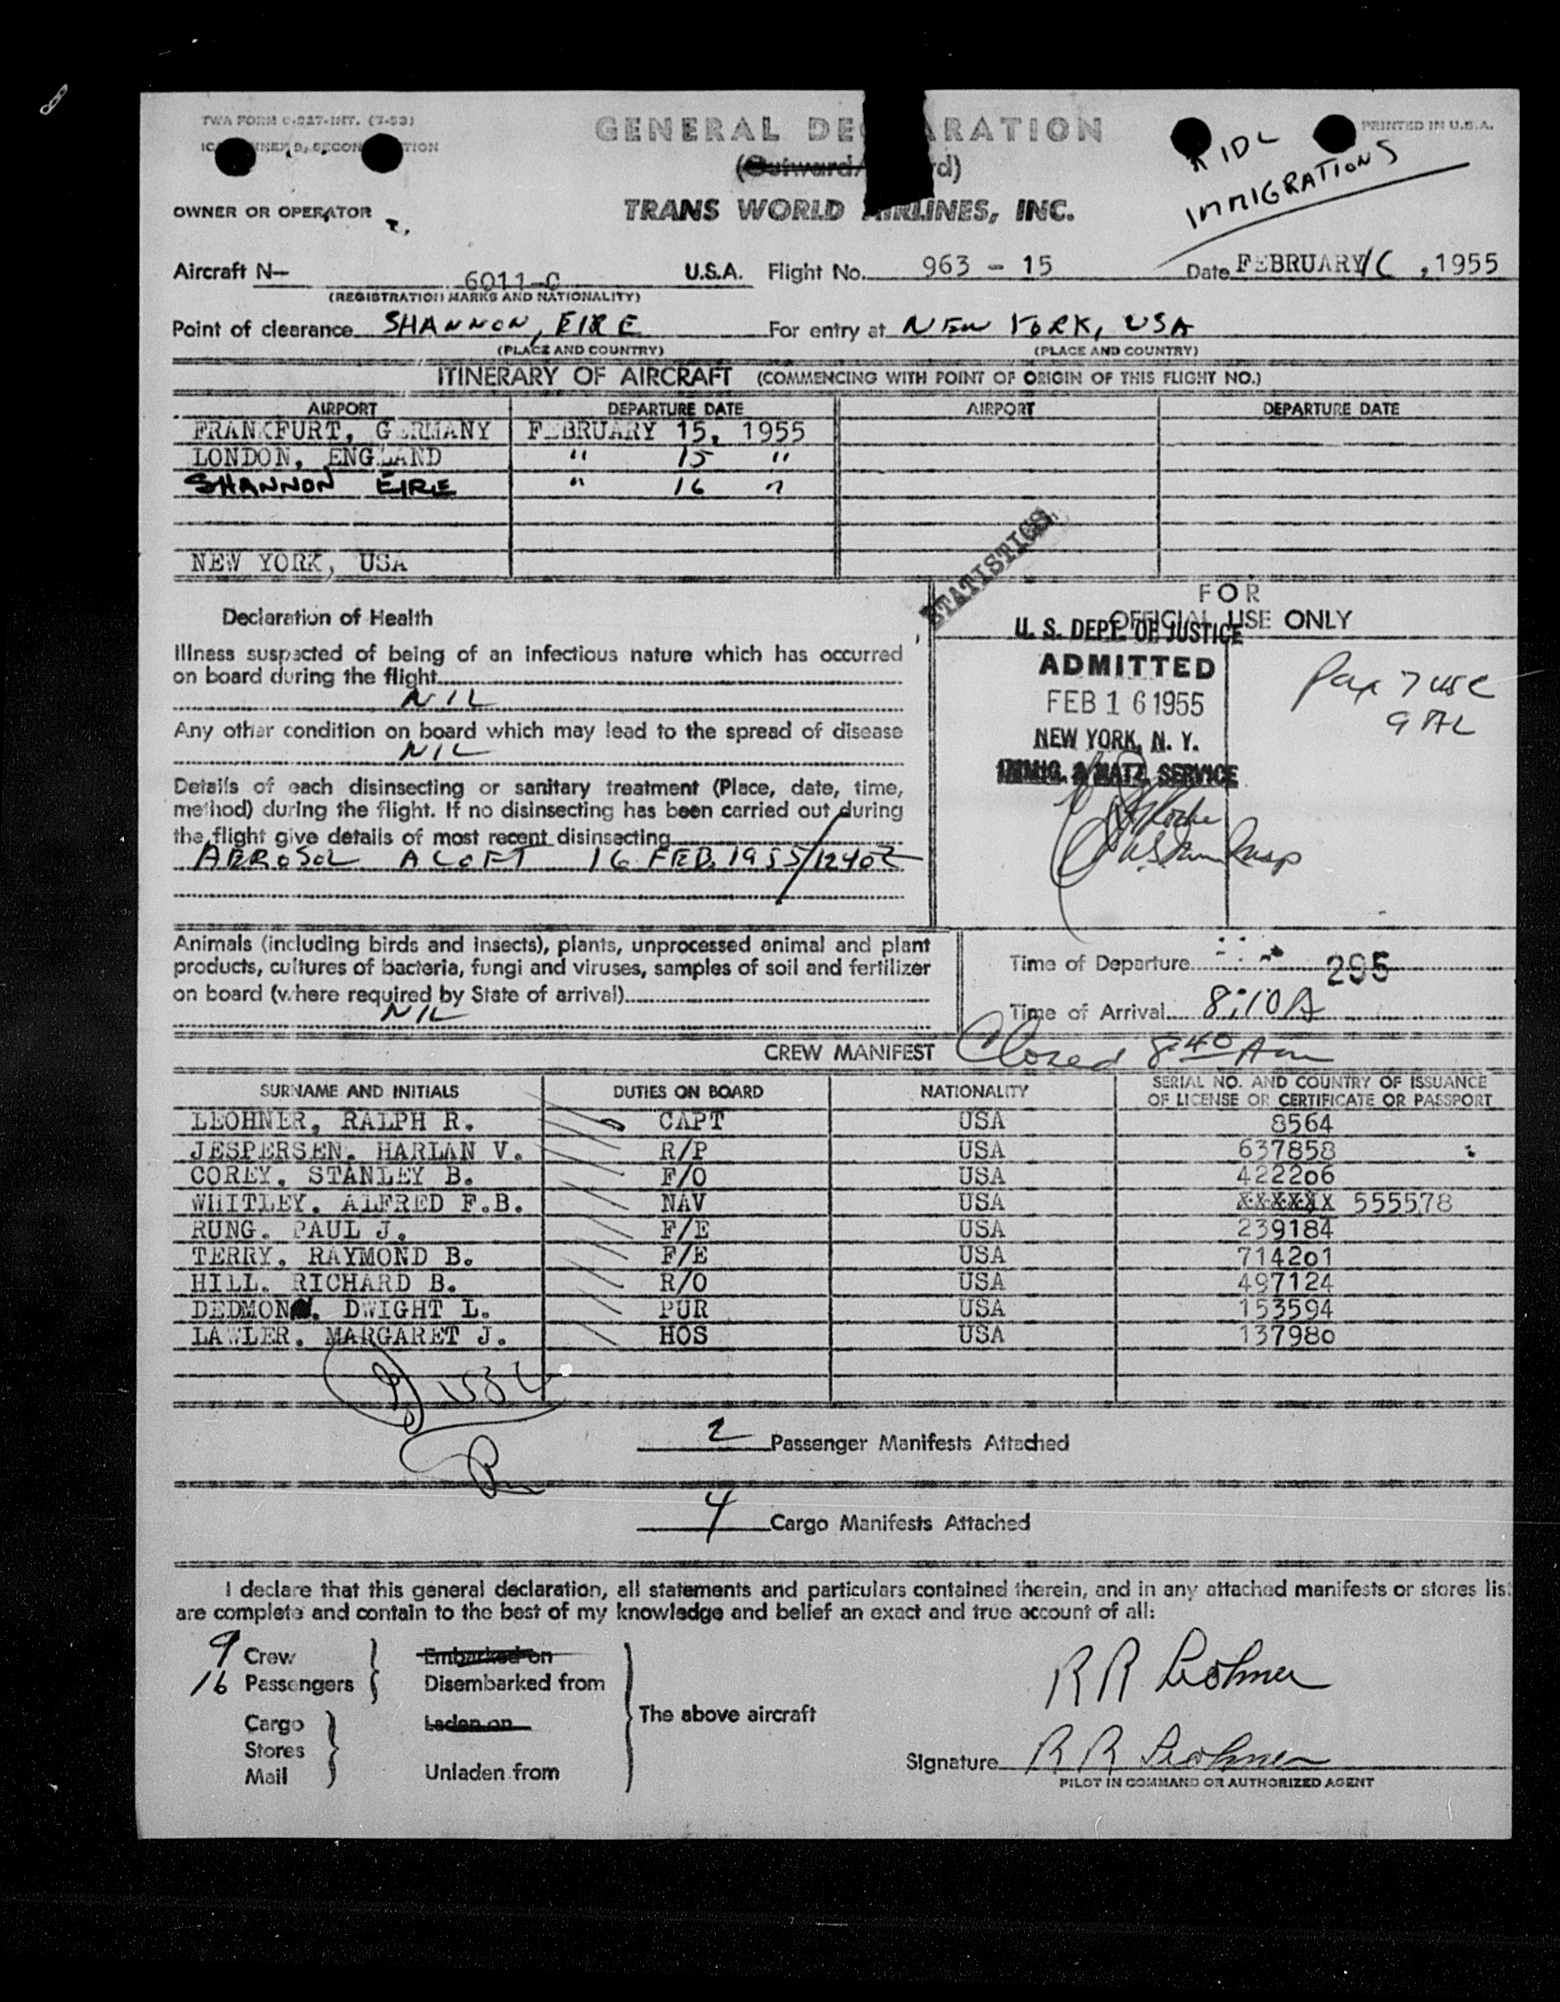 TWA FORM C-227-INT. (7-53)
PRINTED IN U.S.A.
GENERAL DE RATION
(Outward/ rd)
IDL
IMMIGRATIONS
OWNER OR OPERATOR
TRANS WORLD AIRLINES, INC.
Aircraft N— 6011-C U.S.A. Flight No. 963 - 15 Date FEBRUARY 16, 1955
(REGISTRATION MARKS AND NATIONALITY)
Point of clearance SHANNON, EIRE For entry at NEW YORK, USA
(PLACE AND COUNTRY) (PLACE AND COUNTRY)
ITINERARY OF AIRCRAFT (COMMENCING WITH POINT OF ORIGIN OF THIS FLIGHT NO.)
AIRPORT DEPARTURE DATE AIRPORT DEPARTURE DATE
FRANKFURT, GERMANY FEBRUARY 15, 1955
LONDON, ENGLAND " 15 "
SHANNON EIRE " 16 "
NEW YORK, USA
STATISTICS
FOR
OFFICIAL USE ONLY
Declaration of Health
Illness suspected of being of an infectious nature which has occurred
on board during the flight
NIL
Any other condition on board which may lead to the spread of disease
NIL
Details of each disinsecting or sanitary treatment (Place, date, time,
method) during the flight. If no disinsecting has been carried out during
the flight give details of most recent disinsecting
AEROSOL ALOFT 16 FEB. 1955/1240Z
U. S. DEPT. OF JUSTICE
ADMITTED
FEB 16 1955
NEW YORK, N. Y.
IMMIG. & NATZ. SERVICE
Pax 7 USC
9 AL
Animals (including birds and insects), plants, unprocessed animal and plant
products, cultures of bacteria, fungi and viruses, samples of soil and fertilizer
on board (where required by State of arrival)
NIL
Time of Departure 295
Time of Arrival 8:10A
CREW MANIFEST Closed 8:40 Am
SURNAME AND INITIALS DUTIES ON BOARD NATIONALITY SERIAL NO. AND COUNTRY OF ISSUANCE
OF LICENSE OR CERTIFICATE OR PASSPORT
LEOHNER, RALPH R. CAPT USA 8564
JESPERSEN. HARLAN V. R/P USA 637858
COREY. STANLEY B. F/O USA 422206
WHITLEY. ALFRED F.B. NAV USA XXXXXX 555578
RUNG. PAUL J. F/E USA 239184
TERRY. RAYMOND B. F/E USA 714201
HILL. RICHARD B. R/O USA 497124
DEDMON. DWIGHT L. PUR USA 153594
LAWLER. MARGARET J. HOS USA 137980
2 Passenger Manifests Attached
4 Cargo Manifests Attached
I declare that this general declaration, all statements and particulars contained therein, and in any attached manifests or stores list
are complete and contain to the best of my knowledge and belief an exact and true account of all:
9 Crew Embarked on
16 Passengers Disembarked from
Cargo Laden on
Stores
Mail Unladen from
The above aircraft
R R Leohner
Signature R R Leohner
PILOT IN COMMAND OR AUTHORIZED AGENT